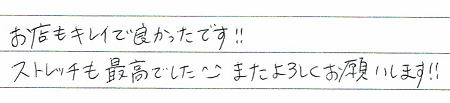 お店もキレイで良かったです!!
ストレッチも最高でした またよろしくお願いします!!